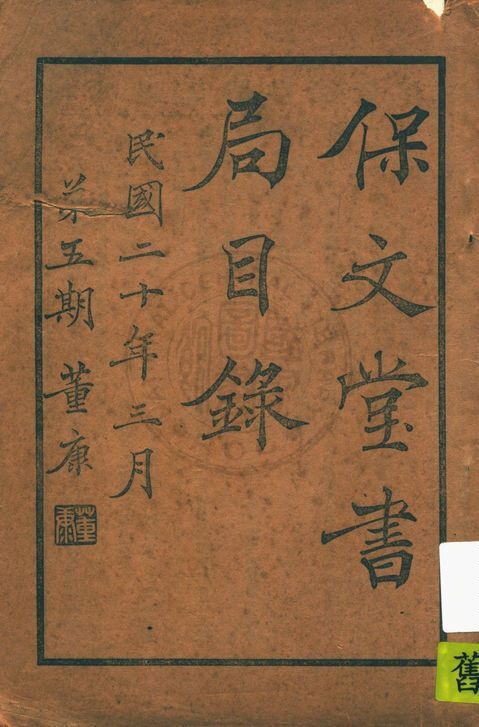 保文堂書
局目錄
民國二十年三月
第五期 董康
董康
舊